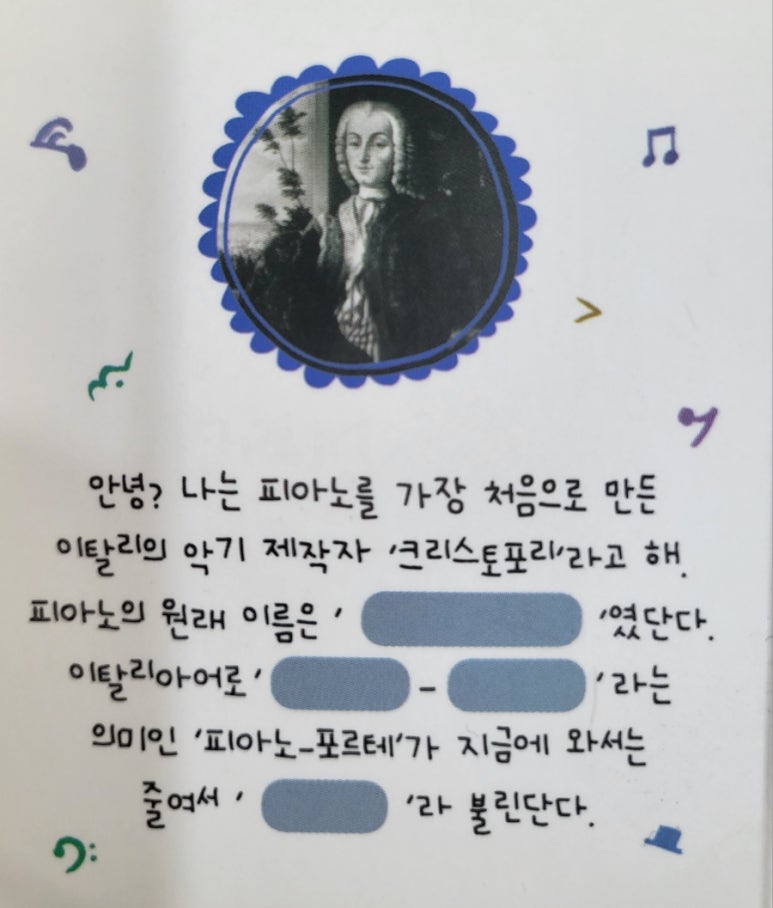 안녕? 나는 피아노를 가장 처음으로 만든
이탈리의 악기 제작자 '크리스토포리'라고 해.
피아노의 원래 이름은 ' '였단다.
이탈리아어로 ' - '라는
의미인 '피아노-포르테'가 지금에 와서는
줄여서 ' '라 불린단다.